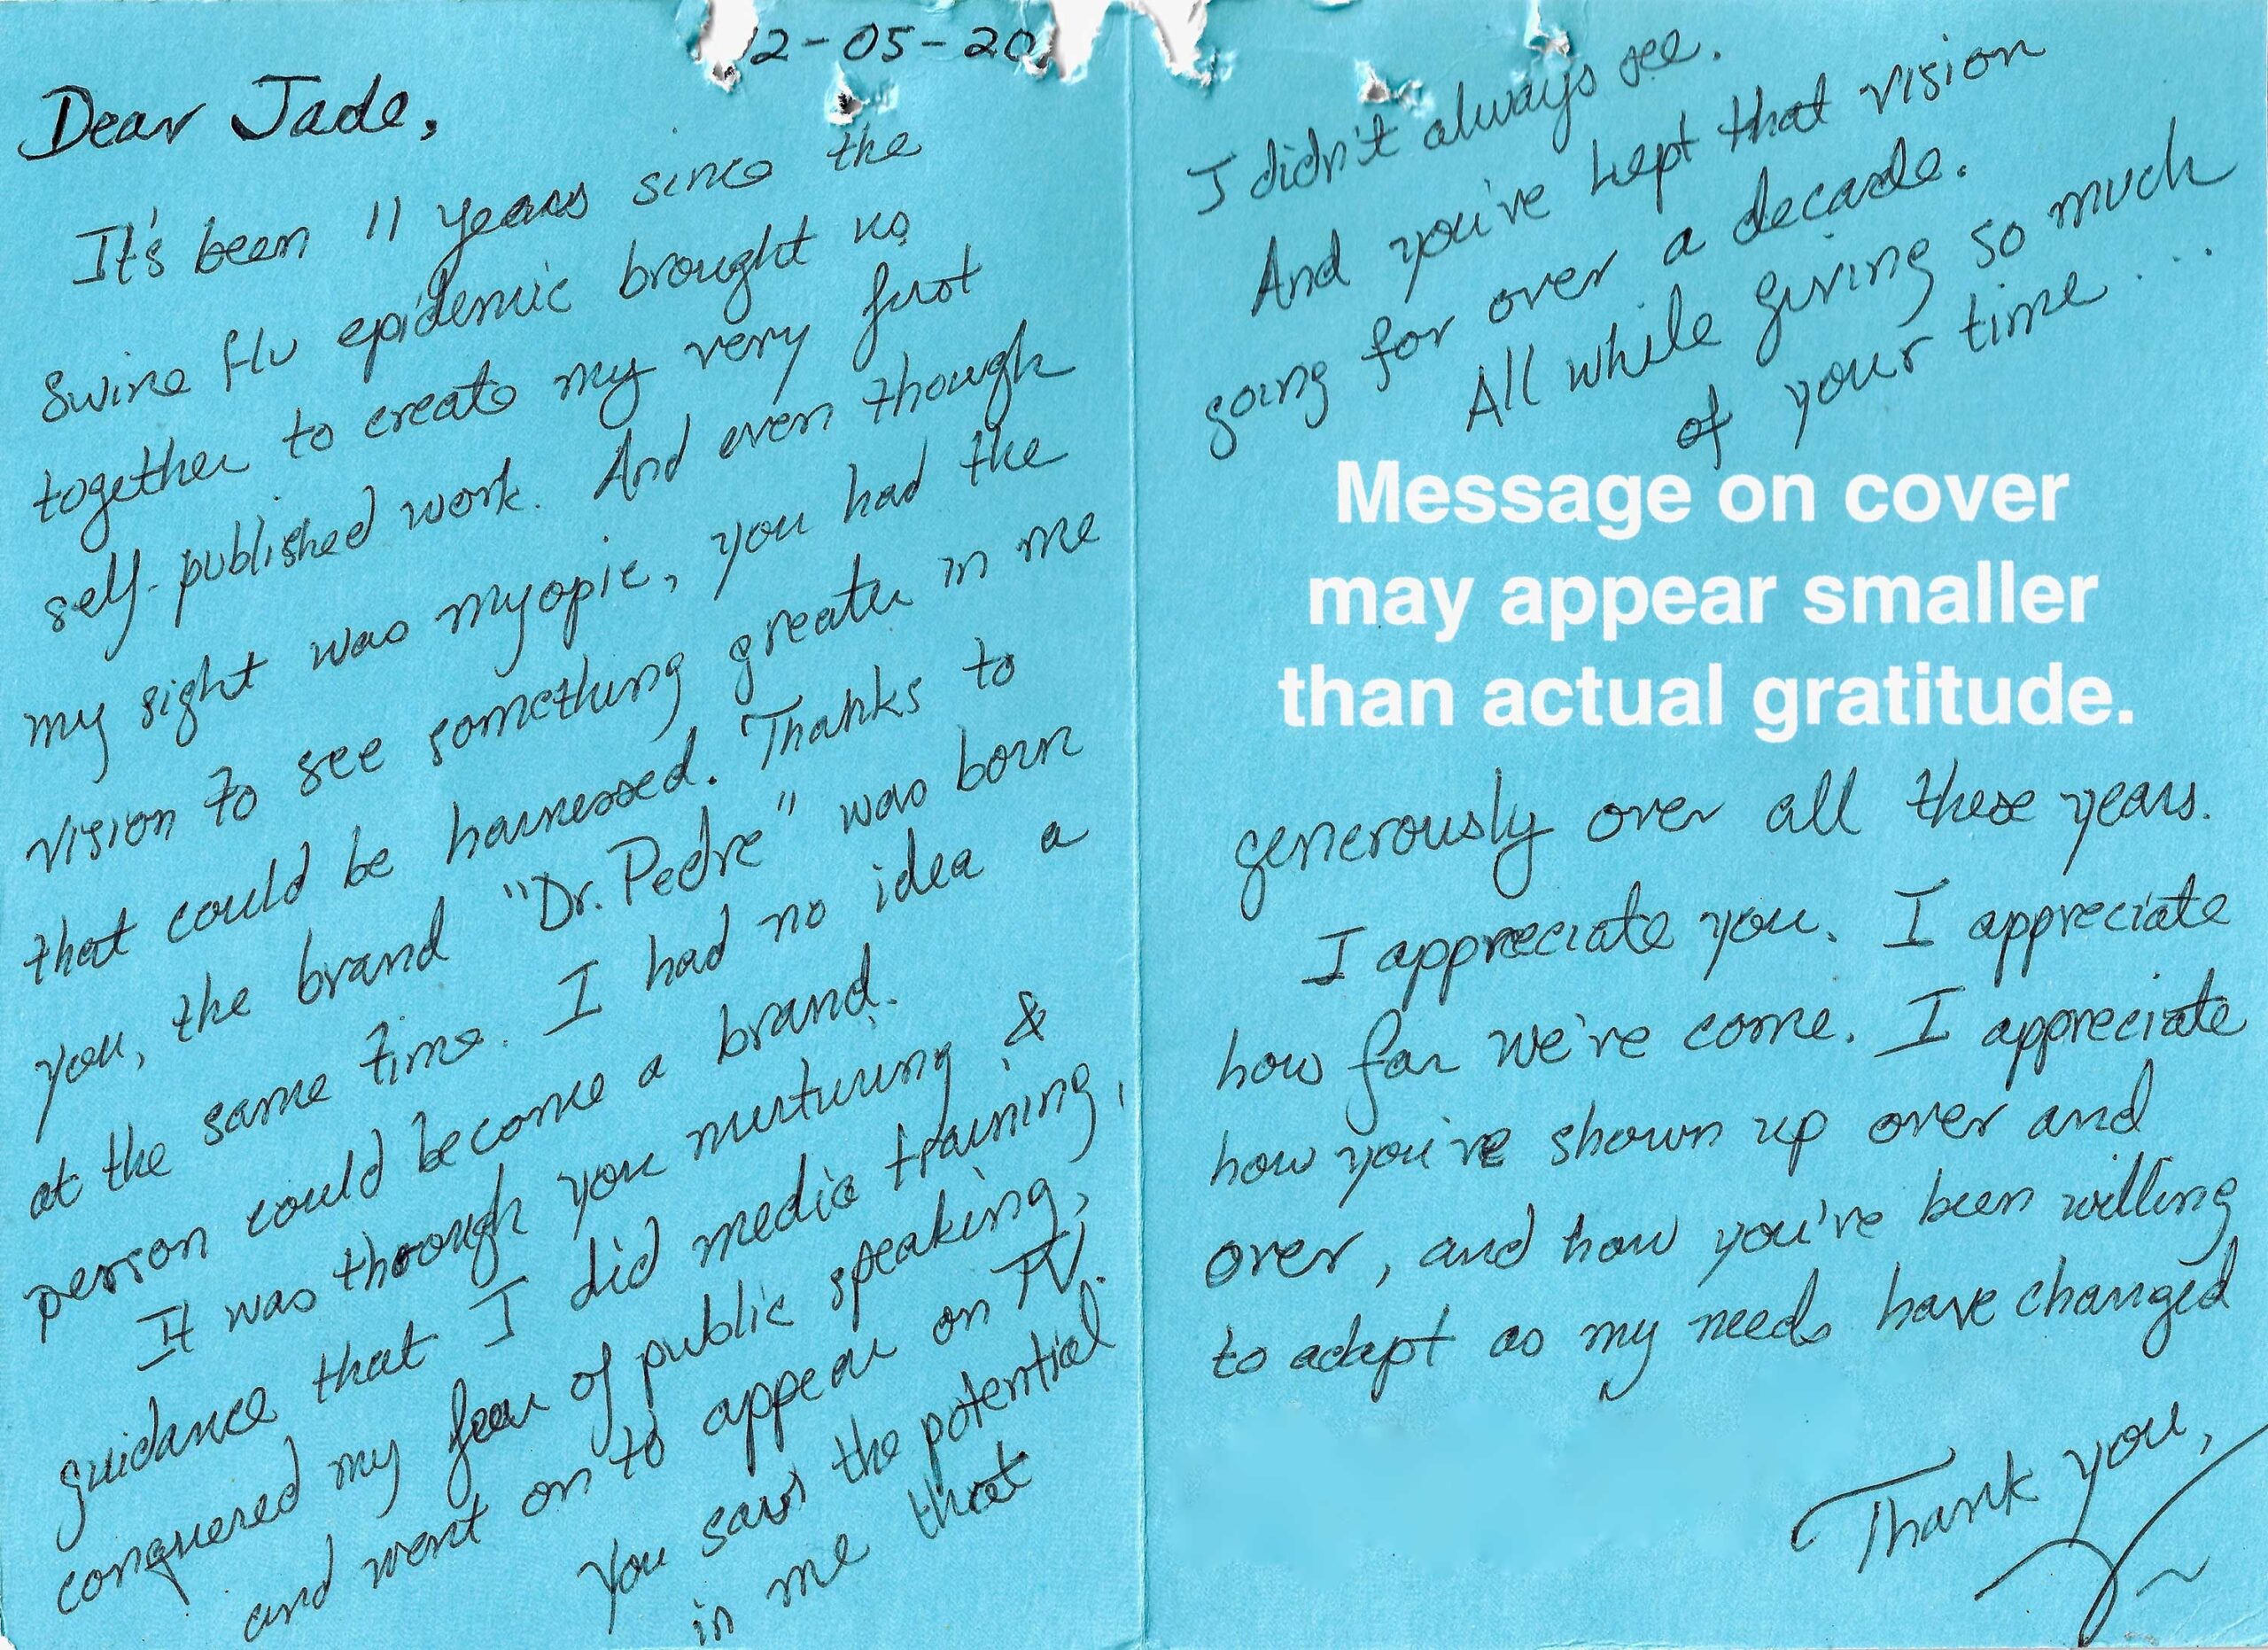 12-05-20
Dear Jade,
It's been 11 years since the
Swine flu epidemic brought us
together to create my very first
self-published work. And even though
my sight was myopic, you had the
vision to see something greater in me
that could be harnessed. Thanks to
you, the brand "Dr. Pedre" was born
at the same time. I had no idea a
person could become a brand.
It was through you nurturing &
guidance that I did media training,
conquered my fear of public speaking,
and went on to appear on TV.
You saw the potential
in me that
I didn't always see.
And you've kept that vision
going for over a decade.
All while giving so much
of your time...
Message on cover
may appear smaller
than actual gratitude.
generously over all these years.
I appreciate you. I appreciate
how far we've come. I appreciate
how you've shown up over and
over, and how you've been willing
to adapt as my needs have changed
Thank you,